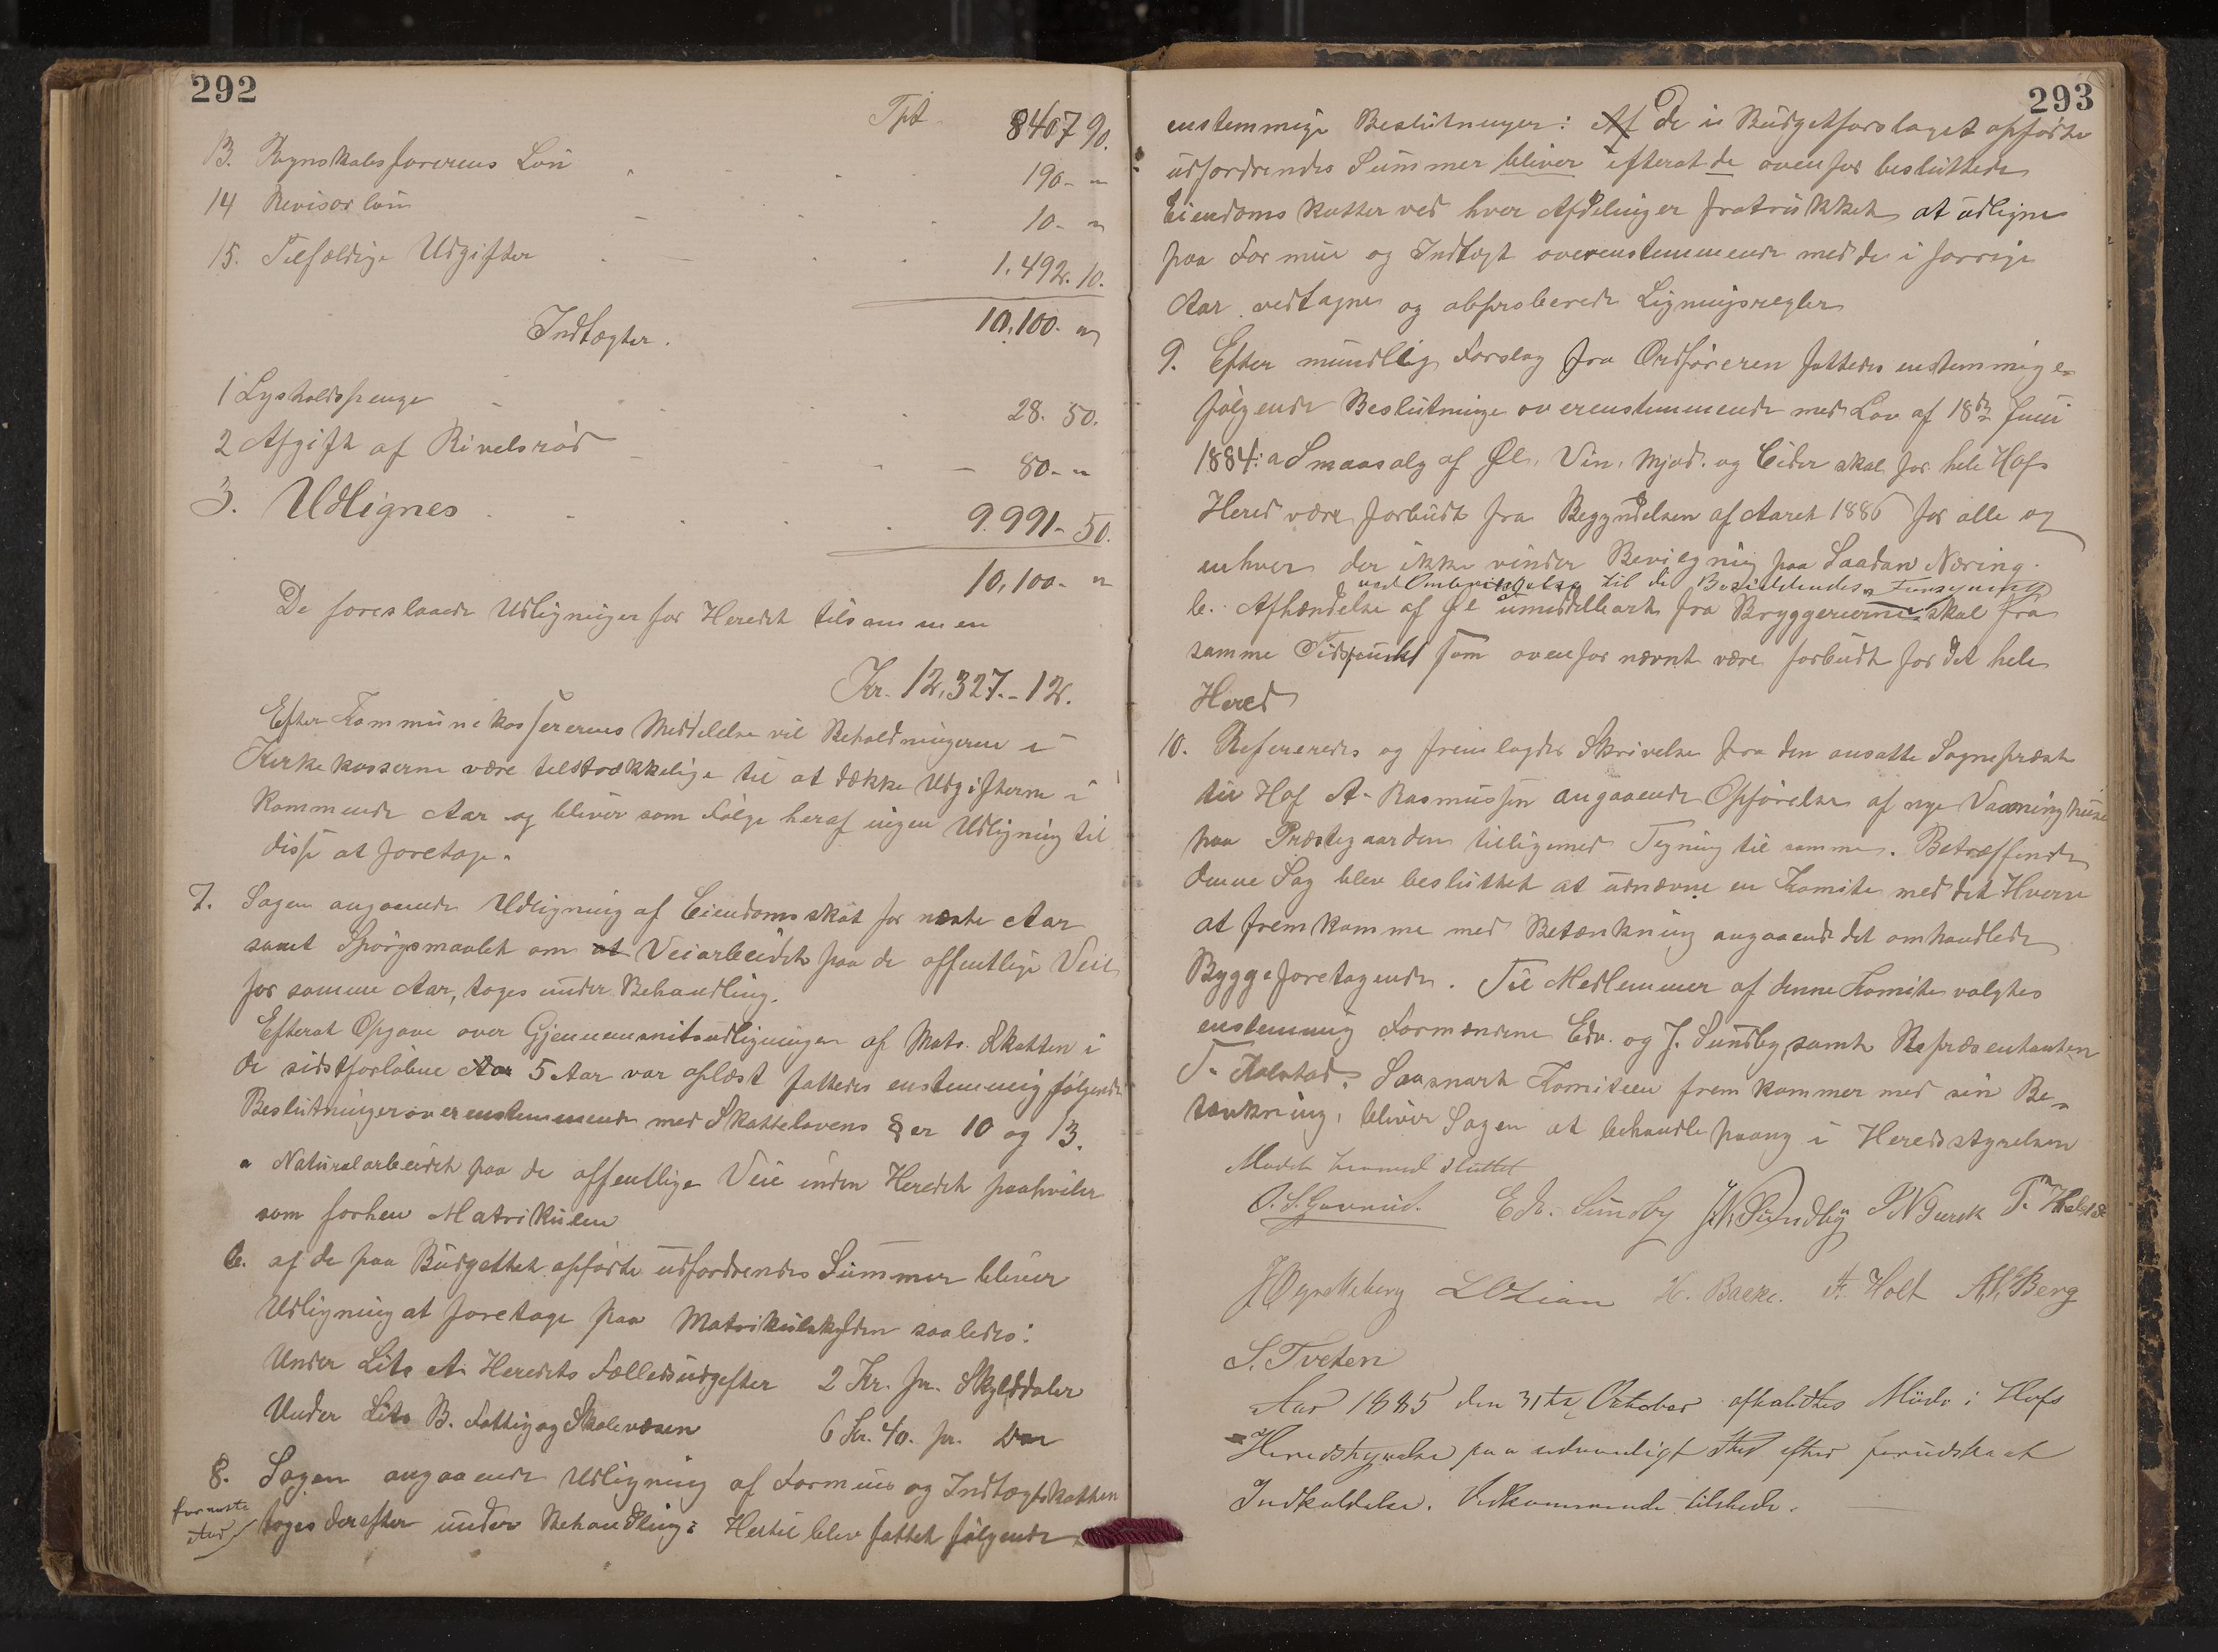 292
Tpt 8407 90.
13. Regnskabsførerens Løn 190- "
14 Revisorløn 10- "
15. Tilfældige Udgifter 1.492. 10.
10,100. "
Indtægter.
1 Lysholdspenge 28. 50.
2 Afgift af Rivelsrød 80- "
3. Udlignes 9.991- 50.
10,100- "
De foreslaaede Udligninger for Heredet tilsammen
Kr. 12,327.-12.
Efter Kommunekassererens Meddelelse vil Beholdningerne i
Kirkekasserne være tilstrækkelige til at dække Udgifterne i
kommende Aar og bliver som Følge heraf ingen Udligning til
disse at foretage.
7. Sagen angaaende Udligning af Eiendomsskat for næste Aar
samt Spørgsmaalet om at Veiarbeidet paa de offentlige Veie
for samme Aar, toges under Behandling.
Efterat Opgave over Gjennemsnitsudligningen af Matr. Skatten i
de sidstforløbne Aar 5 Aar var oplæst fattedes enstemmig følgende
Beslutninger overenstemmende med Skattelovens §er 10 og 13.
a Naturalarbeidet paa de offentlige Veie inden Heredet paahviler
som forhen Matrikulen
b. af de paa Budgettet opførte udfordrendes Summer bliver
Udligning at foretage paa Matrikulskylden saaledes:
Under Litr A. Heredets Fælledsudgifter 2 Kr. pr. Skylddaler
Under Litr B. Fattig og Skolevæsen 6 Kr. 40. pr. Do
8. Sagen angaaende Udligning af Formue og Indtægtskatten
for næste Aar toges derefter under Behandling: Hertil blev fattet følgende
293
enstemmige Beslutninger: Af De i Budgetforslaget opførte
udfordrendes Summer bliver efterat de ovenfor besluttede
Eiendomskatter ved hver Afdelinger fratrukket at udligne
paa Formue og Indtægt overenstemmende med de i forrige
Aar vedtagne og approberede Ligningsregler
9. Efter mundtlig Forslag fra Ordføreren fattedes enstemmige
følgende Beslutninge overenstemmende med Lov af 18de Juni
1884: a Smaasalg af Øl, Vin, Mjød. og Cider skal for hele Hofs
Hered være forbudt fra Begyndelsen af Aaret 1886 for alle og
enhver der ikke vinder Bevilgning paa Saadan Næring.
ved Ombringelse til de Bestillendes Forsyning
b. Afhændelse af Øl umiddelbart fra Bryggerierne skal fra
samme Tidspunkt som ovenfor nævnt være forbudt for det hele
Hered
10. Refereredes og fremlagdes Skrivelse fra den ansatte Sognepræst
til Hof A. Rasmussen angaaende Opførelse af nye Vaaninghuse
paa Præstegaarden tilligemed Tegning til samme. Betræffende
denne Sag blev besluttet at udnævne en Komite med det Hverv
at fremkomme med Betænkning angaaende det omhandlede
Byggeforetagende. Til Medlemmer af denne Komite valgtes
enstemmig Formændene Edv. og J. Sundby samt Repræsentanten
T. Aalstad. Saasnart Komiteen fremkommer med sin Be-
tænkning, bliver Sagen at behandle paany i Heredsstyrelsen
Mødet hermed sluttet
Edv. Sundby J.N. Sundby
L O Lian H. Bakke. A. Holt A. Berg
S. Tveten
Aar 1885 den 31te Oktober afholdtes Møde i Hofs
Heredstyrelse paa sædvanligt Sted efter forudskeet
Indkaldelse. Vedkommende tilstede.